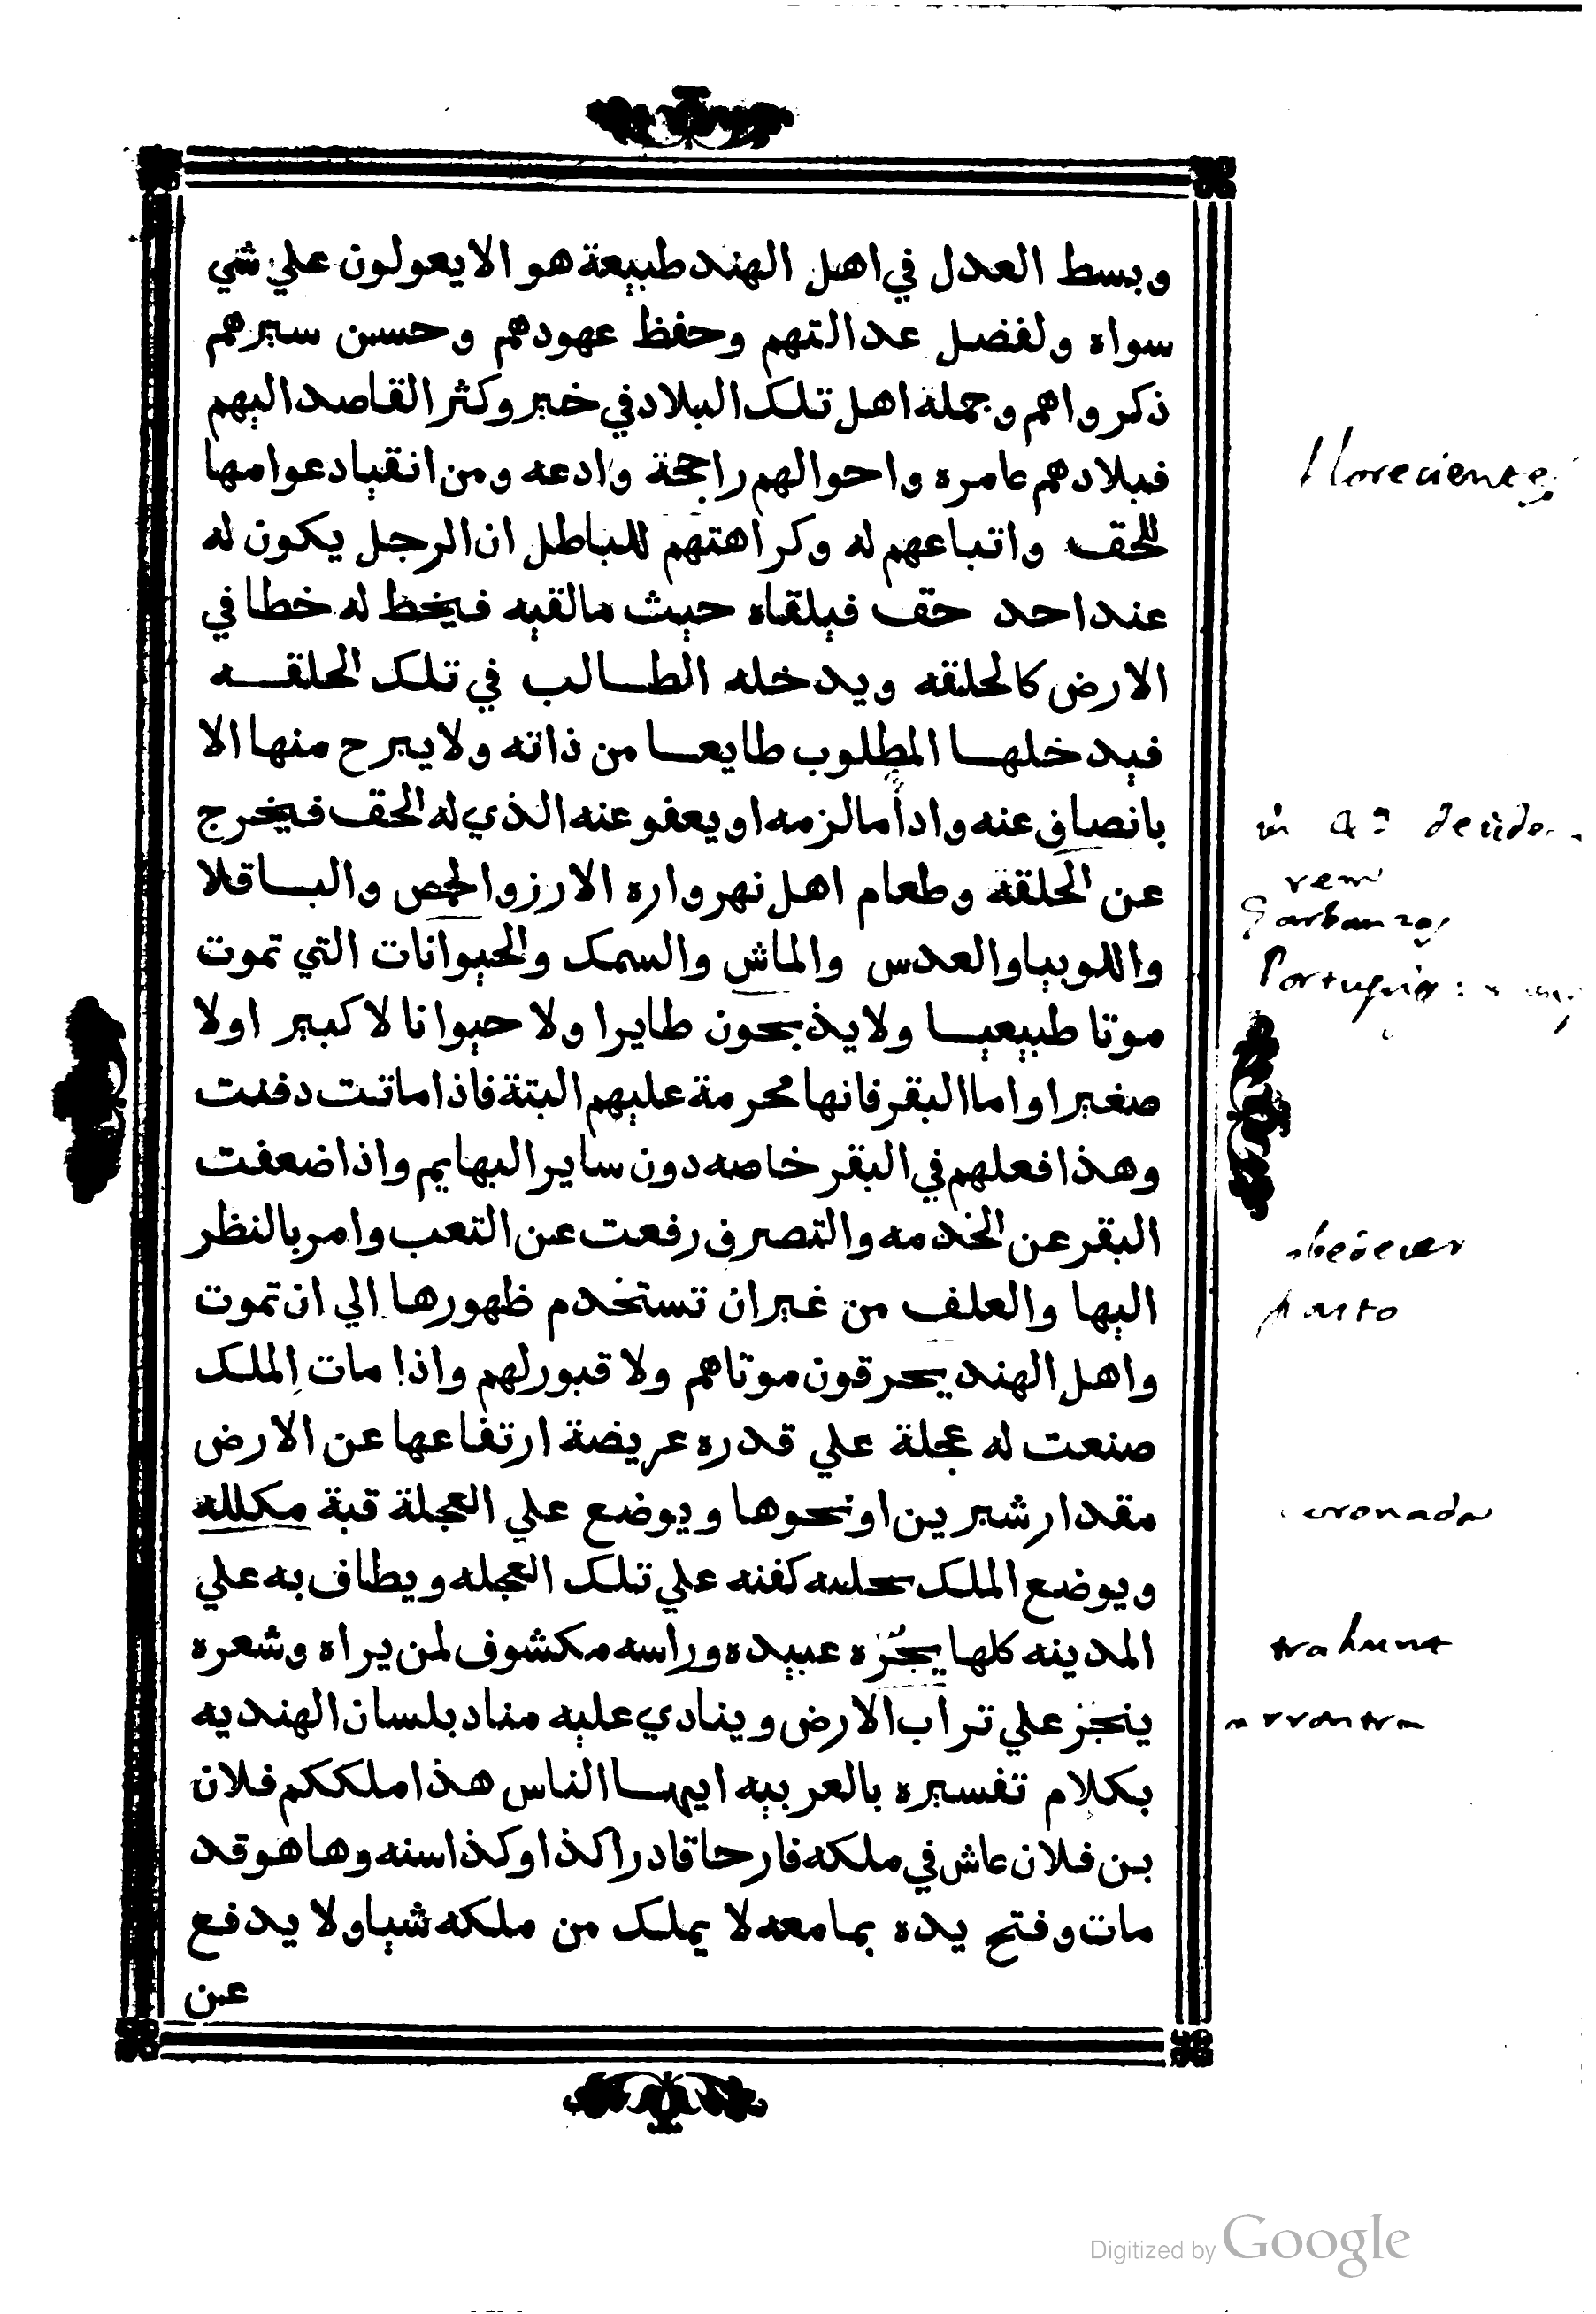 وبسط العدل في اهل الهند طبيعة هو الا يعولون علي شي
سواه ولفضل عدالتهم وحفظ عهودهم وحسن سيرهم
ذكر واهم وجملة اهل تلك البلاد في خير وكثر القاصد اليهم
فبلادهم عامره واحوالهم راجحة وادعه ومن انقياد عوامها
للحق واتباعهم له وكراهتهم للباطل ان الرجل يكون له
عند احد حق فيلقاه حيث ما لقيه فيخط له خطا في
الارض كالحلقه ويدخله الطالب في تلك الحلقه
فيدخلها المطلوب طايعا من ذاته ولا يبرح منها الا
بانصاف عنه وادا ما لزمه او يعفو عنه الذي له الحق فيخرج
عن الحلقة وطعام اهل نهرواره الارز والحمص والباقلا
واللوبيا والعدس والماش والسمك والحيوانات التي تموت
موتا طبيعيا ولا يذبحون طايرا ولا حيوانا لا كبير اولا
صغيرا واما البقر فانها محرمة عليهم البتة فاذا ماتت دفنت
وهذا فعلهم في البقر خاصه دون ساير البهايم واذا ضعفت
البقر عن الخدمه والتصرف رفعت عن التعب وامر بالنظر
اليها والعلف من غير ان تستخدم ظهورها الي ان تموت
واهل الهند يحرقون موتاهم ولا قبور لهم واذا مات الملك
صنعت له عجلة علي قدره عريضة ارتفاعها عن الارض
مقدار شبرين او نحوها ويوضع علي العجلة قبة مكلله
ويوضع الملك بحليه كفنه علي تلك العجله ويطاف به علي
المدينه كلها يجرّه عبيده وراسه مكشوف لمن يراه وشعره
ينجرّ علي تراب الارض وينادي عليه مناد بلسان الهنديه
بكلام تفسيره بالعربيه ايها الناس هذا ملككم فلان
بن فلان عاش في ملكه فارحا قادرا كذا وكذا سنه وها هو قد
مات وفتح يده بما معه لا يملك من ملكه شيا ولا يدفع
عن
florecientes
in 4ª
rem
Garbanzos
pasto
coronada
trahunt
Digitized by Google